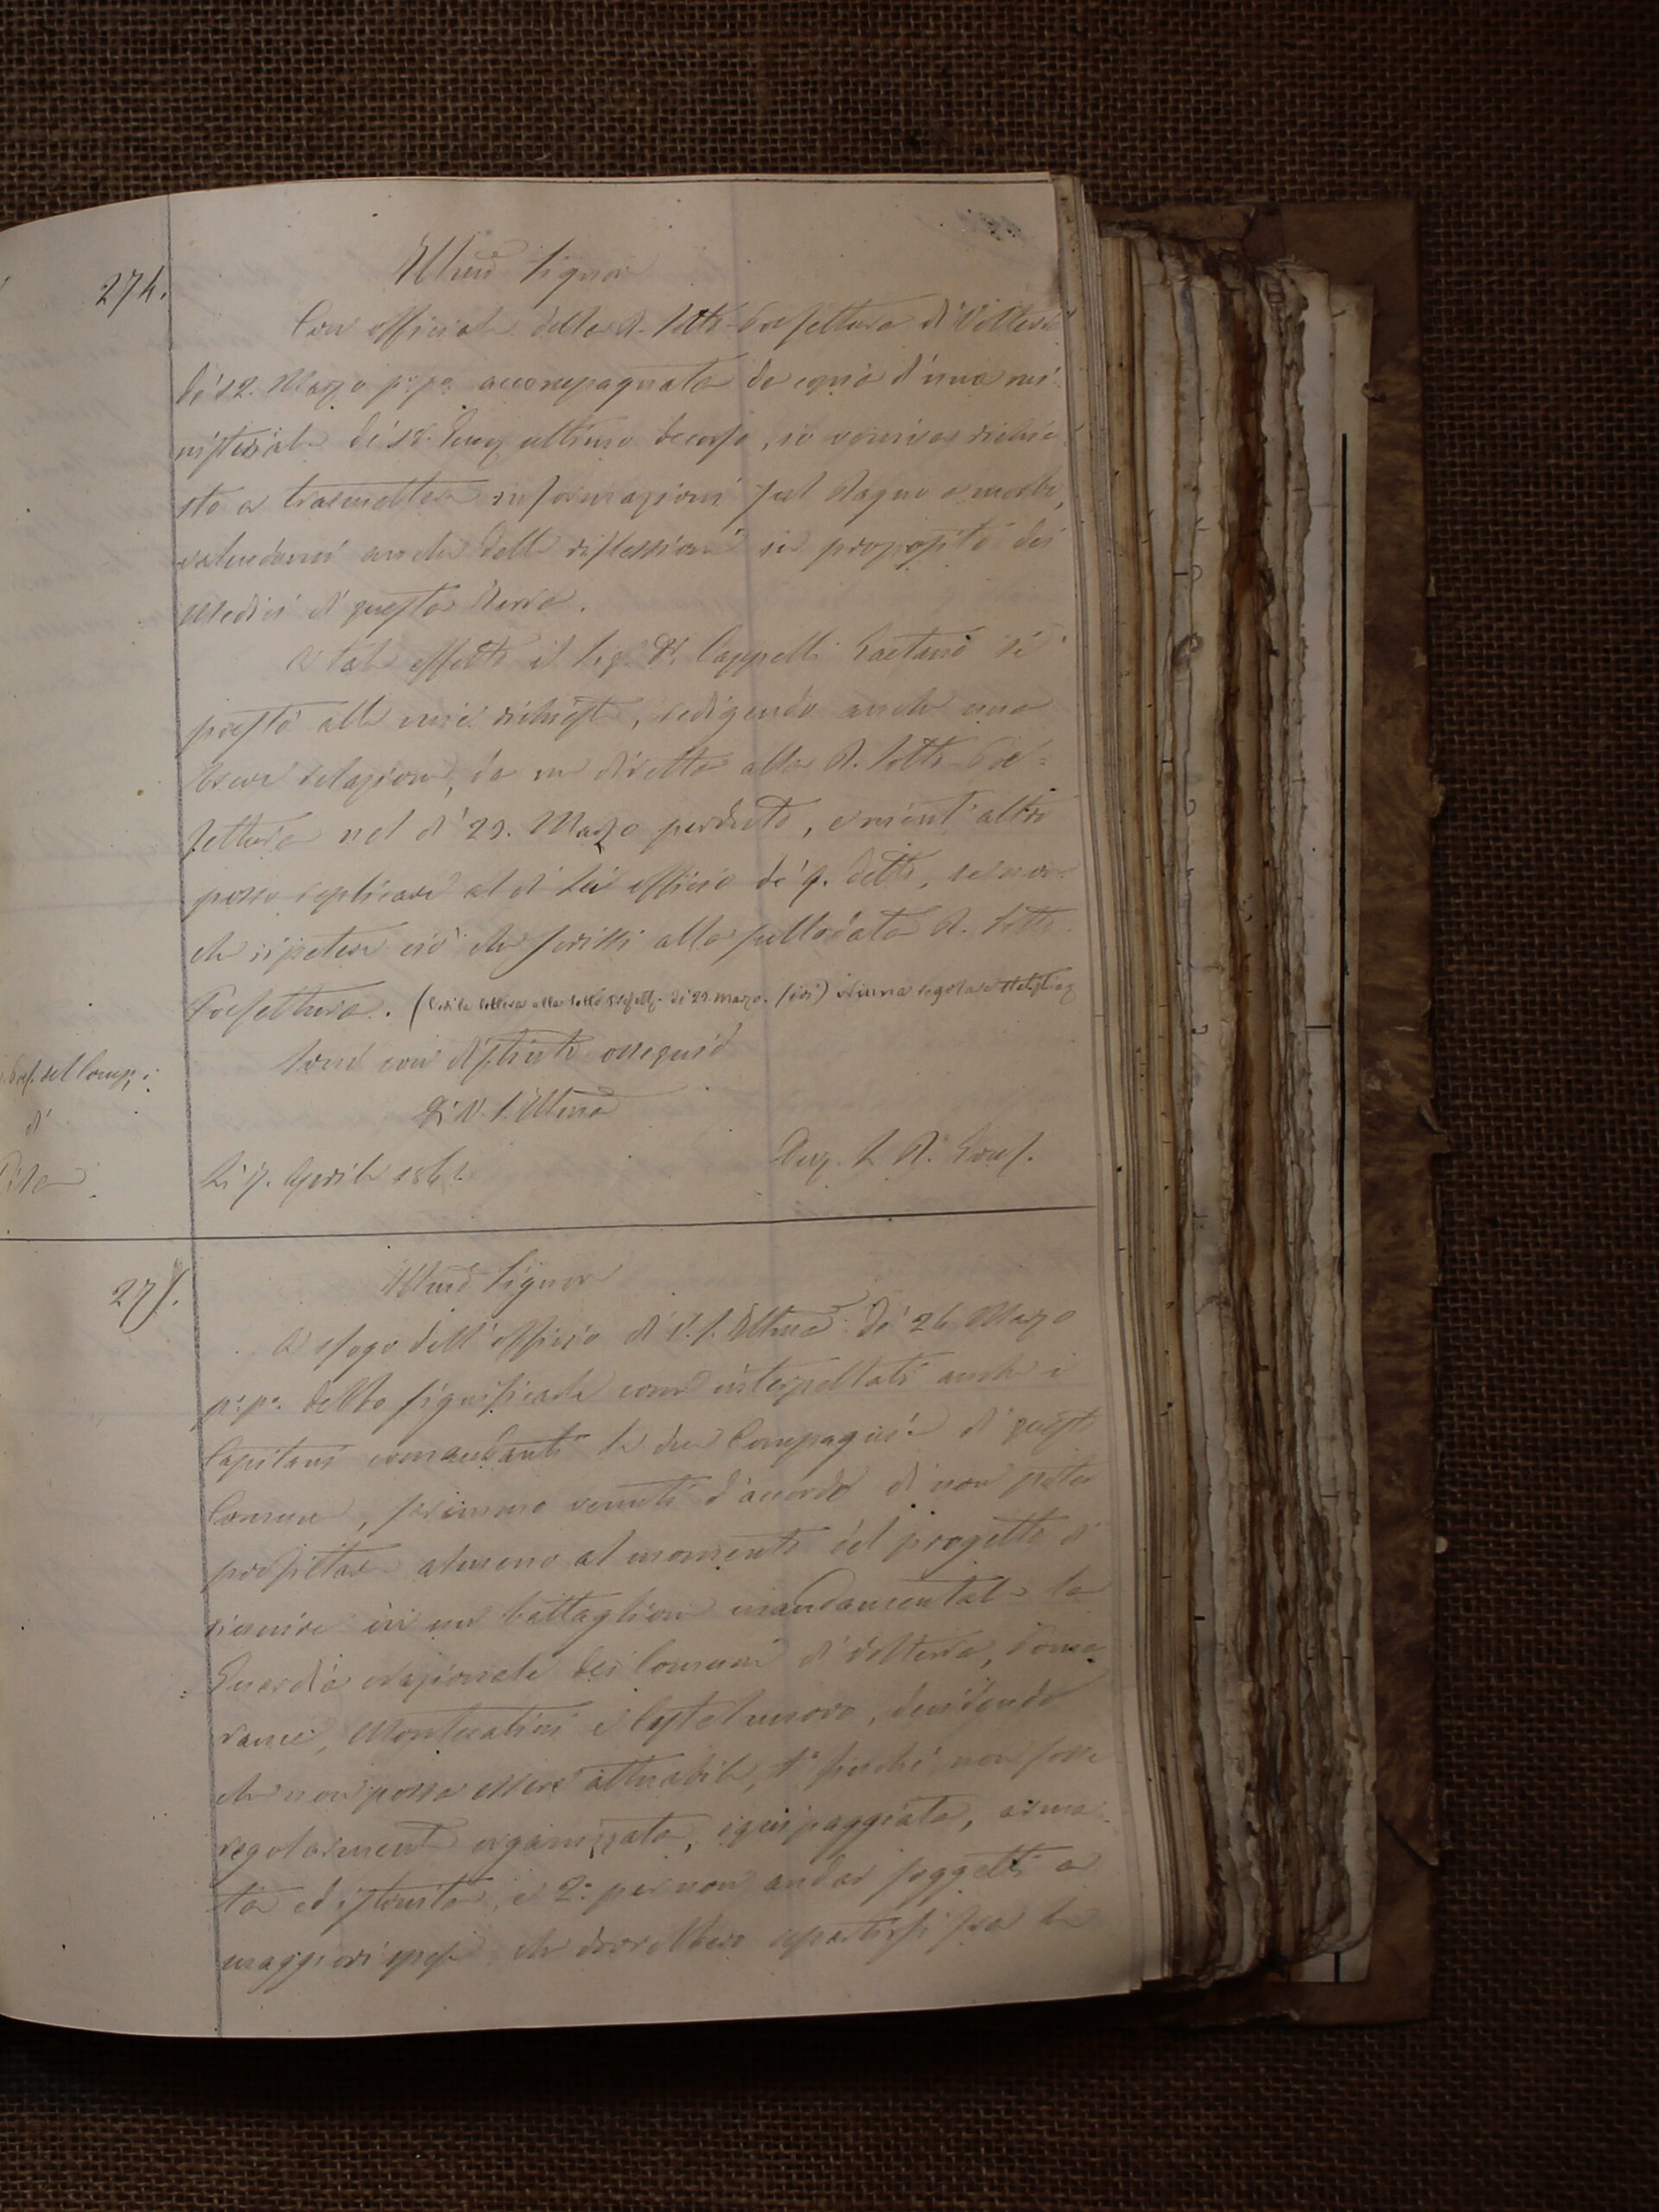 274.
Illmo Signore
Con officiale della R. Sotto-Prefettura di Volterra
de' 12. Marzo p:o p:o accompagnata da copia d'una mi:
nisteriale de' 18. ultimo decorso, io veniva richie
sto a trasmettere informazioni sul Bagno a morbo,
valendomi anche delle riflessioni in proposito dei
Medici di questa Terra.
A tale effetto il Sig. Dr. Cappelli Gaetano si
prestò alle mie richieste, redigendo anche una
breve relazione, da me diretta alla R. Sotto-Pre=
fettura nel dì 29. Marzo perduto, e nient'altro
posso replicare al di Lei officio de' 9. detto, se non
che ripetere ciò che scrissi alla sullodata R. Sotto
Prefettura. (Vedi la lettera alla Sotto Prefett. de' 29. marzo.
Sono con distinto ossequio
Di V. S. Illma
Pref. del Comp:
di
Pisa
Li 9. Aprile 1862.
275.
Illmo Signore
A sfogo dell'officio di V. S. Illma de' 26 Marzo
p:o p:o debbo significarle come interpellati anche i
Capitani comandanti le due Compagnie di questo
Comune, fummo venuti d'accordo di non poter
profittare almeno al momento del progetto di
riunire in un battaglione mandamentale la
Guardia Nazionale dei Comuni di Volterra, Poma
rance, Montecatini e Castelnuovo, decidendo
che non possa essere attuabile, 1.o perché non fosse
regolarmente organizzata, equipaggiata, arma
ta ed istruita, e 2.o per non andar soggetti a
maggiori spese che dovrebbero repartirsi fra le